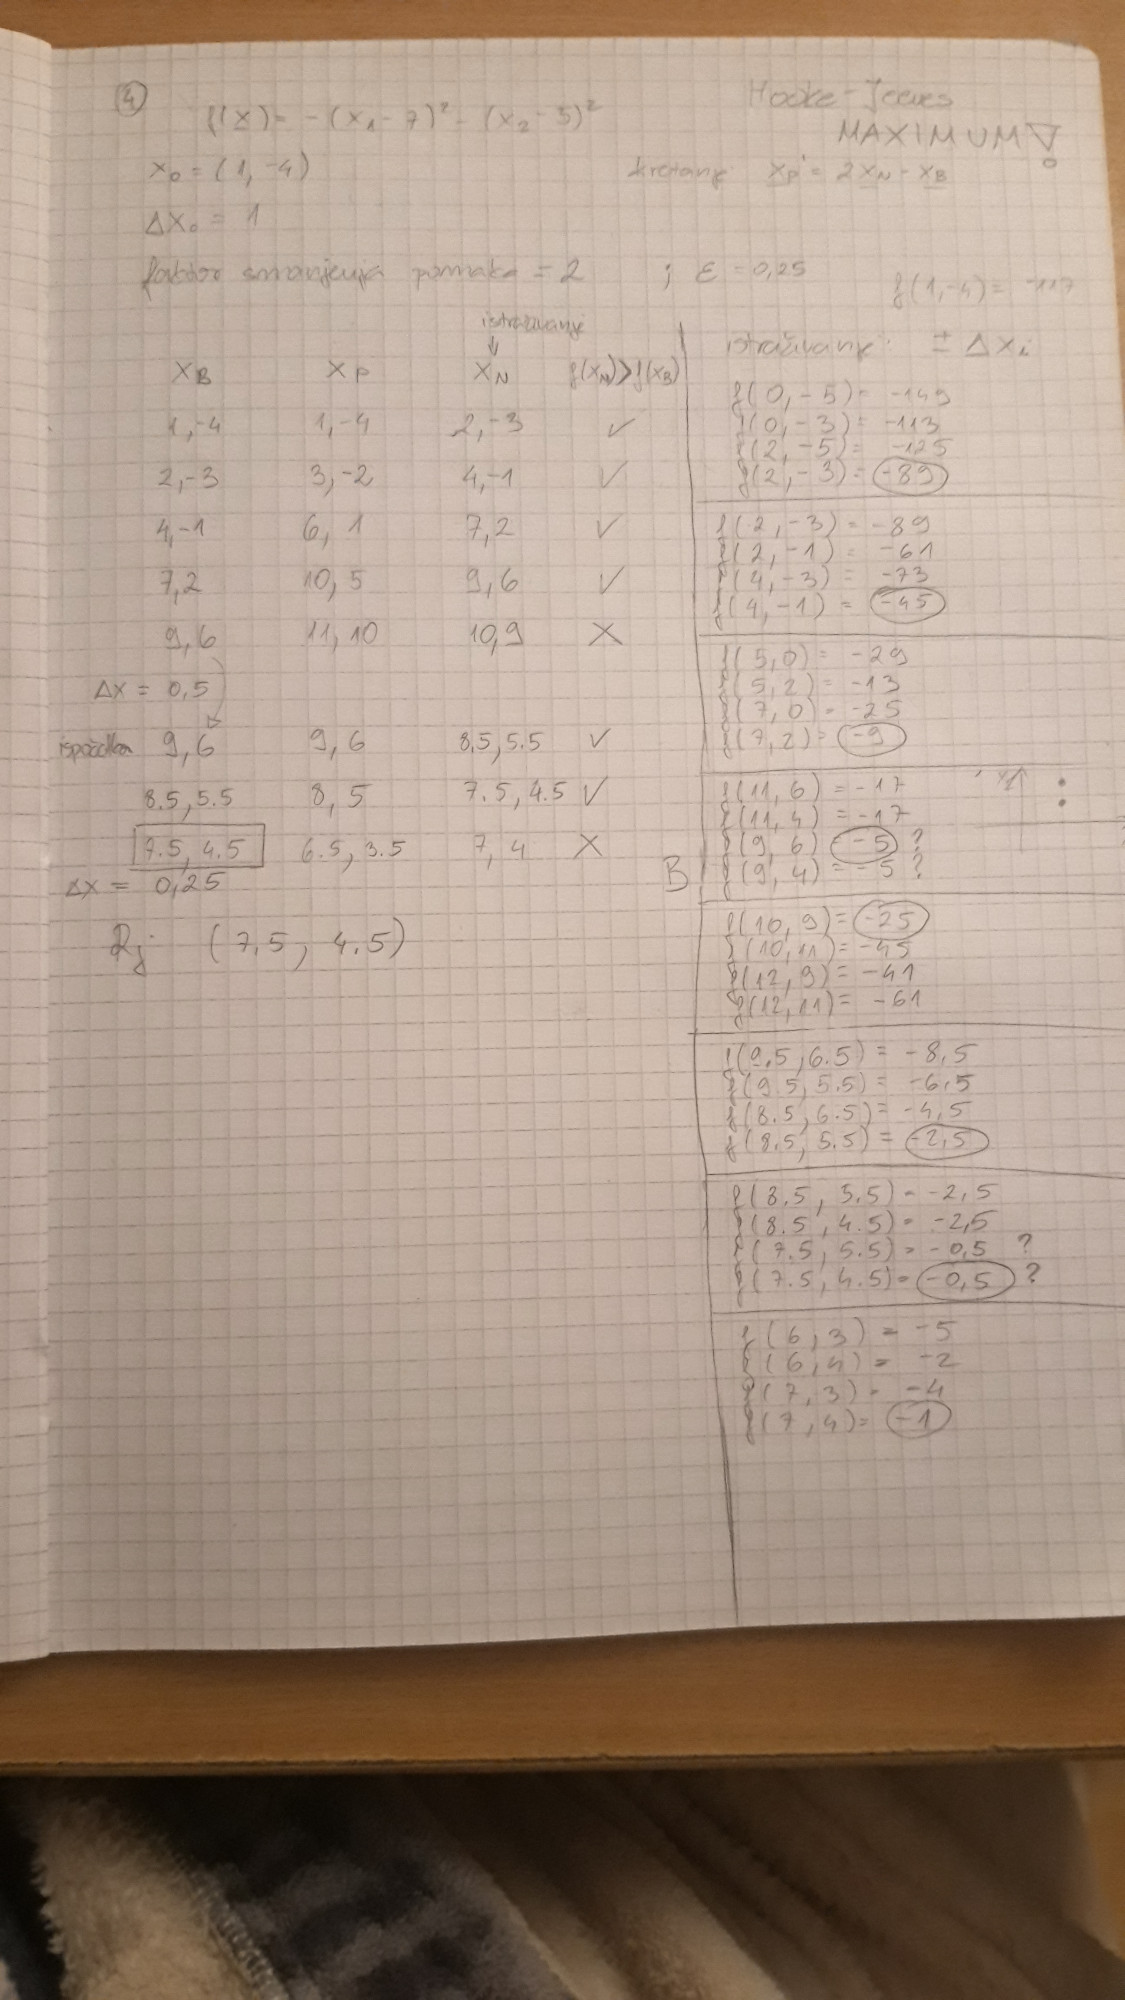 4
f(x) = -(x1-7)² - (x2-5)²
Hooke-Jeeves
MAXIMUM!
x0 = (1, -4)
kretanje xp' = 2xN - xB
Δx0 = 1
faktor smanjenja pomaka = 2 ; ε = 0,25
f(1,-4) = -117
istraživanje
istraživanje: ± Δxi
xB xP xN f(xN)>f(xB)
1,-4 1,-4 2,-3 ✓
2,-3 3,-2 4,-1 ✓
4,-1 6, 1 7,2 ✓
7,2 10, 5 9, 6 ✓
9, 6 11, 10 10,9 X
Δx = 0,5
ispočetka 9, 6 9, 6 8,5, 5.5 ✓
8.5, 5.5 8, 5 7.5, 4.5 ✓
7.5, 4.5 6.5, 3.5 7, 4 X
Δx = 0,25
Rj: (7.5, 4.5)
f(0, -5) = -149
f(0, -3) = -113
f(2, -5) = -125
f(2, -3) = -89
f(2, -3) = -89
f(2, -1) = -61
f(4, -3) = -73
f(4, -1) = -45
f(5,0) = -29
f(5,2) = -13
f(7,0) = -25
f(7,2) = -9
f(11,6) = -17
f(11,4) = -17
f(9, 6) = -5 ?
B f(9, 4) = -5 ?
f(10,9) = -25
f(10,11) = -45
f(12,9) = -41
f(12,11) = -61
f(9.5, 6.5) = -8,5
f(9.5, 5.5) = -6,5
f(8.5, 6.5) = -4,5
f(8.5, 5.5) = -2,5
f(8.5, 5.5) = -2,5
f(8.5, 4.5) = -2,5
f(7.5, 5.5) = -0,5 ?
f(7.5, 4.5) = -0,5 ?
f(6, 3) = -5
f(6, 4) = -2
f(7, 3) = -4
f(7, 4) = -1